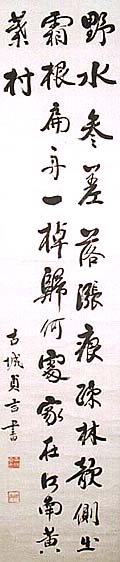 野水参差落漲痕疎林欹側出
霜根扁舟一棹歸何處家在江南黄
葉村
古城貞吉書